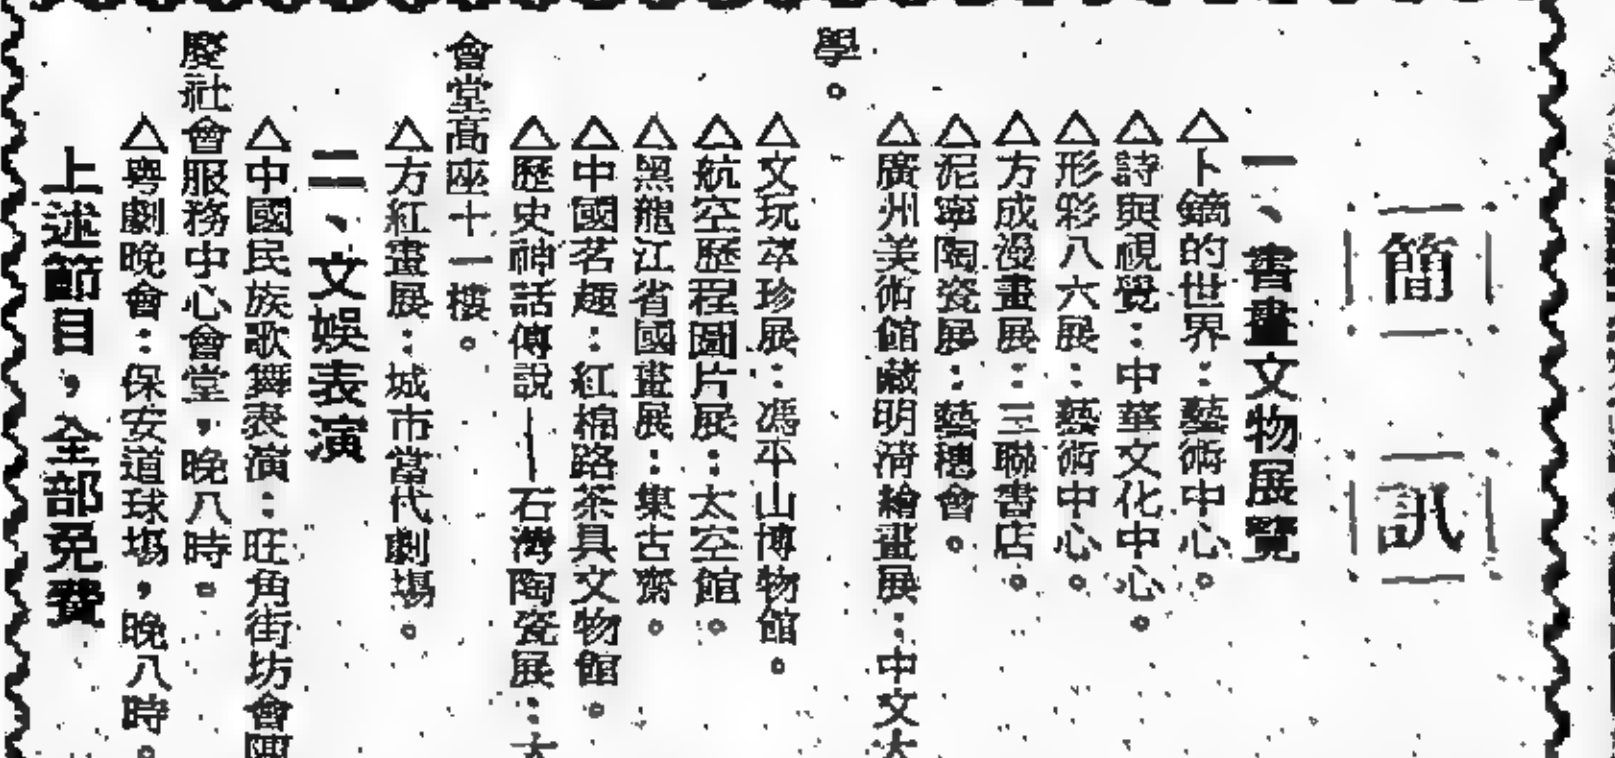 簡訊
一、書畫文物展覽
△卜鏑的世界：藝術中心。
△詩與視覺：中華文化中心。
△形彩八六展：藝術中心。
△方成漫畫展：三聯書店。
△泥寧陶瓷展：藝穗會。
△廣州美術館藏明清繪畫展：中文大
學。
△文玩萃珍展：馮平山博物館。
△航空歷程圖片展：太空館。
△黑龍江省國畫展：集古齋。
△中國茗趣：紅棉路茶具文物館。
△歷史神話傳説—石灣陶瓷展：大
會堂高座十一樓。
△方紅畫展：城市當代劇場。
二、文娛表演
△中國民族歌舞表演：旺角街坊會陳
慶社會服務中心會堂，晚八時。
△粵劇晚會：保安道球場，晚八時。
上述節目，全部免費